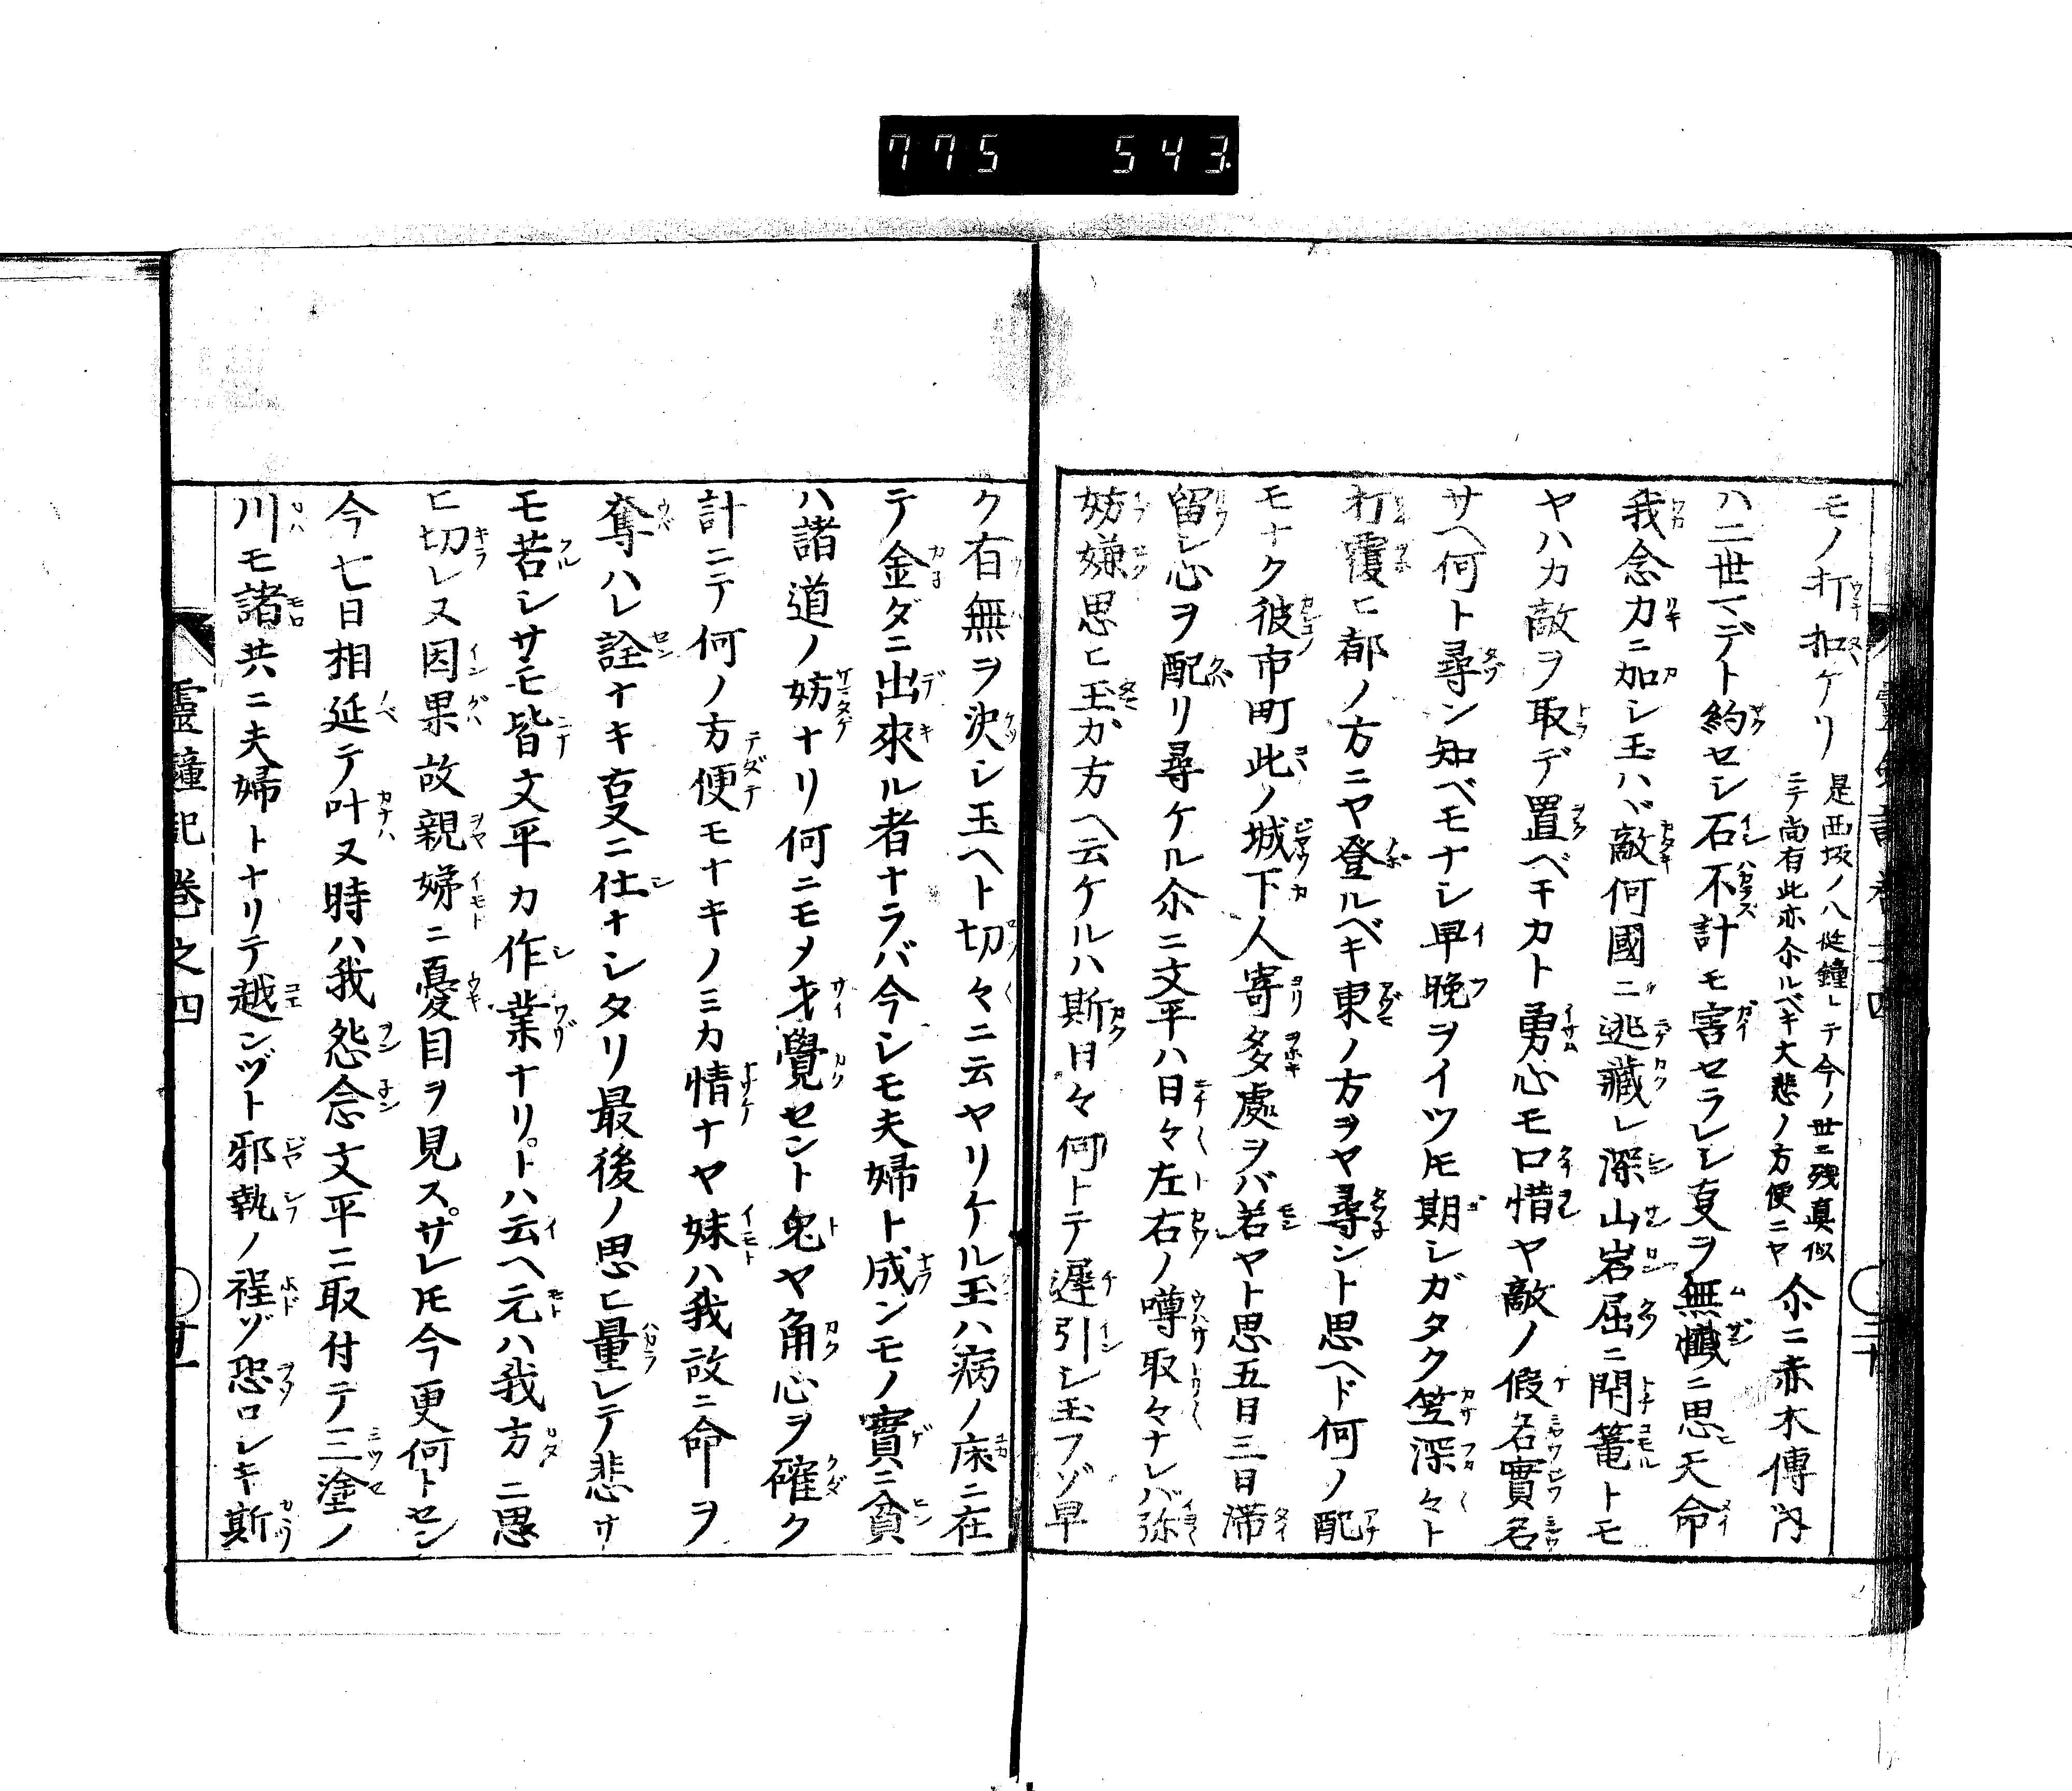 775 543
モノ打扣ケリ
是西坂ノ八従鐘ㇾテ今ノ世ニ残真似
ニテ尚有此亦尒ルベキ大悲ノ方便ニヤ
尒ニ赤木傳内
ハ二世マデト約セシ石不計モ害セラレシ㕝ヲ無慚ニ思ヒ天命
我念力ニ加シ玉ハヾ敵何國ニ逃藏レ深山岩屈ニ閇篭トモ
ヤハカ敵ヲ取デ置ベキカト勇心モ口惜ヤ敵ノ假名實名
サヘ何ト尋ン知ベモナシ早晩ヲイツ𪜈期シガタク笠深々ト
打覆ヒ都ノ方ニヤ登ルベキ東ノ方ヲヤ尋ント思ヘド何ノ配
モナク彼市町此ノ城下人寄多處ヲバ若ヤト思五日三日滞
留シ心ヲ配リ尋ケル尒ニ文平ハ日々左右ノ噂取々ナレバ弥
妨嫌思ヒ玉ガ方ヘ云ケルハ斯日々何トテ遅引シ玉フゾ早
ク有無ヲ决シ玉ヘト切々ニ云ヤリケル玉ハ病ノ床ニ在
テ金ダニ出來ル者ナラバ今シモ夫婦ト成ンモノ實ニ貧
ハ諸道ノ妨ナリ何ニモメ才覺セント兎ヤ角心ヲ確ク
計ニテ何ノ方便モナキノミカ情ナヤ妹ハ我故ニ命ヲ
奪ハレ詮ナキ㕝ニ仕ナシタリ最後ノ思ヒ量レテ悲サ
モ若シサモ皆文平カ作業ナリトハ云ヘ元ハ我方ニ思
ヒ切レヌ因果故親娣ニ憂目ヲ見スサレ𪜈今更何トセン
今七日相延テ叶ヌ時ハ我怨念文平ニ取付テ三塗ノ
川モ諸共ニ夫婦トナリテ越ンヅト邪執ノ程ゾ恐ロシキ斯
靈鐘記巻之四
廿一